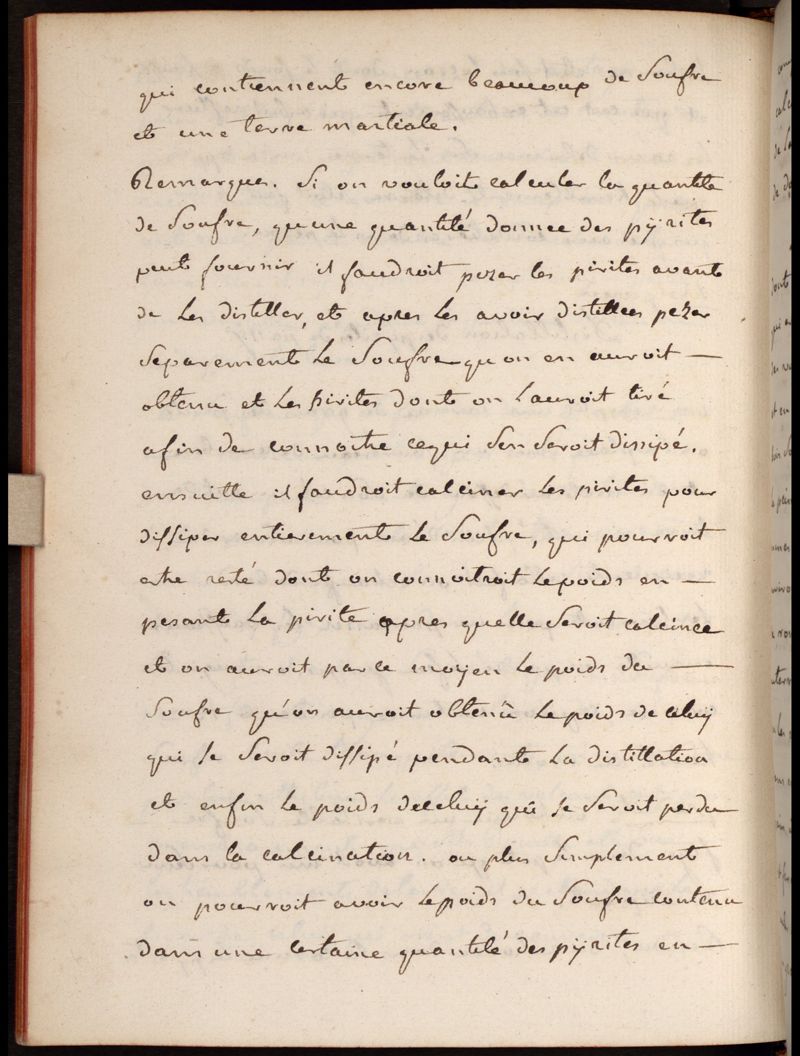 qui contiennent encore beaucoup de Soufre
et une terre martiale.
Remarques. Si on vouloit calculer la quantite
de Soufre, qu'une quantité donnee des pÿrites
peut fournir il faudroit pezer les pirites avant
de les distiller, et apres les avoir distillees pezer
Separement le Soufre qu on en auroit —
obtenu et les pirites dont on l'auroit tiré
afin de connoitre cequi Sen Seroit dissipé.
ensuitte il faudroit calciner les pirites pour
dissiper entierement le Soufre, qui pourroit
etre resté dont on connoitroit lepoids en —
pesant la pirite apres quelle Seroit calcinee
et on auroit par ce moyen le poids du —
Soufre qu'on auroit obtenû le poids de celuy
qui se Seroit dissipé pendant la distillation
et enfin le poids deceluy qui se Seroit perdu
dans la calcination. ou plus Simplement
on pourroit avoir lepoids du Soufre contenu
dans une certaine quantité des pÿrites en —